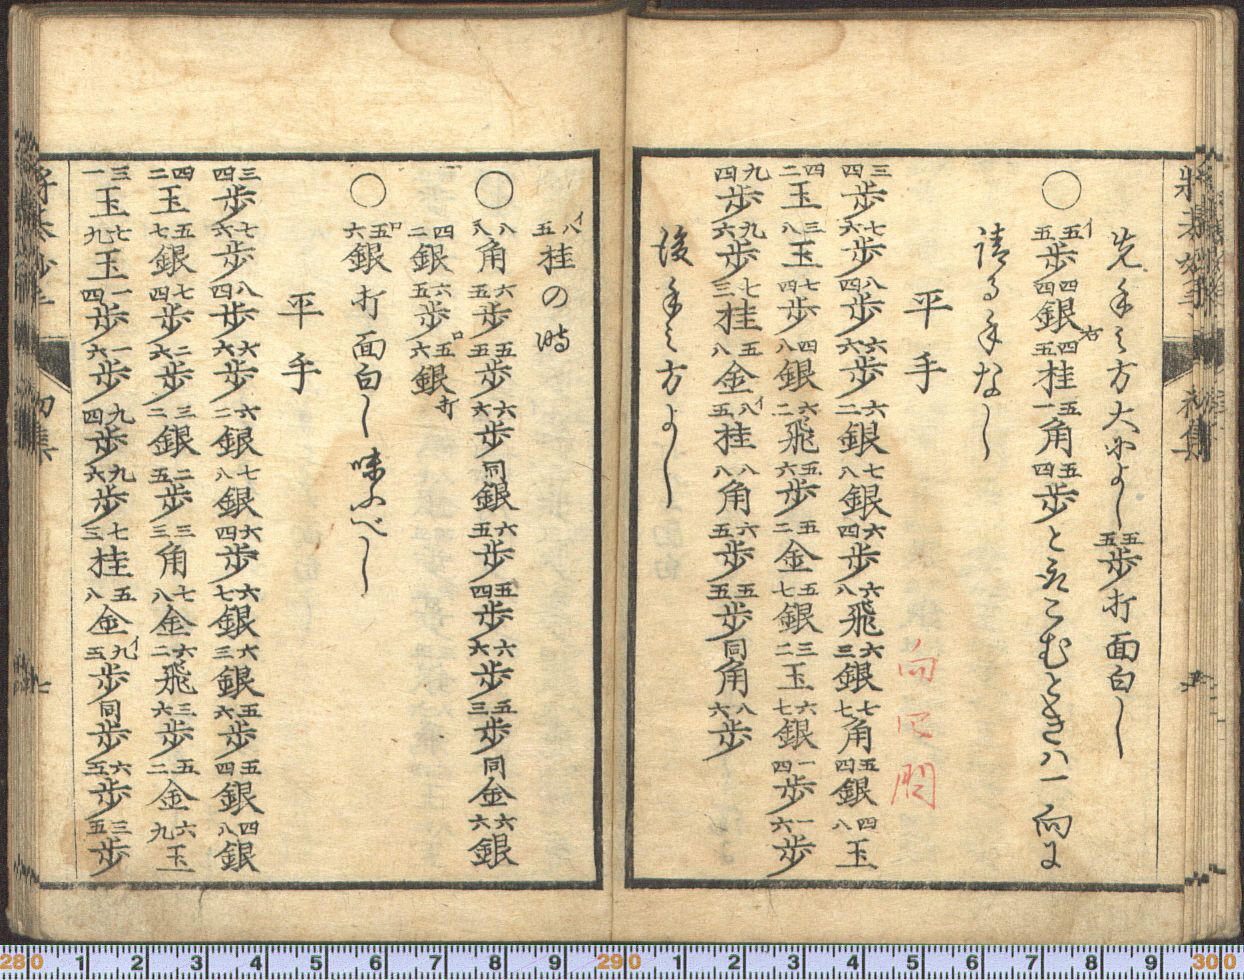 先手之方大によし五五歩打面白し
○五五イ歩四四銀右四五桂五一角五四歩と高こむときハ一向に
請る手なし
平手
向四間
三四歩七六歩八四歩六六歩六二銀七八銀六四歩六八飛六三銀七七角五四銀四八玉
四二玉三八玉七四歩四八銀六二飛五六歩五二金五七銀三二玉六七銀一四歩一六歩
九四歩九六歩七三桂五八金八五イ桂八八角六五歩五五歩同角八六歩
後手之方よし
八五イ桂の時
○八八角六五歩五五歩六六歩同銀六五歩五四歩六六歩五三歩同金六六銀
四二銀六五歩五六ロ銀打
○五六ロ銀打面白し味ふべし
平手
三四歩七六歩八四歩六六歩六二銀七八銀六四歩六七銀六三銀五六歩五四銀四八銀
四二玉五七銀七四歩二六歩三二銀二五歩三三角七八金六二飛三六歩五二金六九玉
三一玉七九玉一四歩一六歩九四歩九六歩七三桂五八金九五イ歩同歩六五歩三五歩
将棊妙手 初集
七
280 1 2 3 4 5 6 7 8 9 290 1 2 3 4 5 6 7 8 9 300